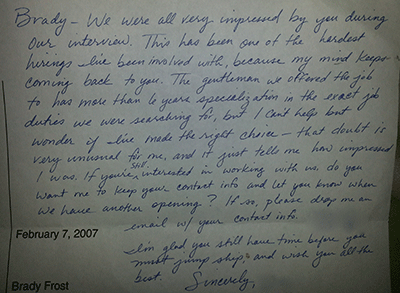 Brady - We were all very impressed by you during
our interview. This has been one of the hardest
hirings I've been involved with, because my mind keeps
coming back to you. The gentleman we offered the job
to has more than 6 years specialization in the exact job
duties we were searching for, but I can't help but
wonder if I've made the right choice - that doubt is
very unusual for me, and it just tells me how impressed
I was. If you're still interested in working with us, do you
want me to keep your contact info and let you know when
we have another opening? If so, please drop me an
email w/ your contact info.
February 7, 2007
I'm glad you still have time before you
must "jump ship", and wish you all the
best. Sincerely,
Brady Frost